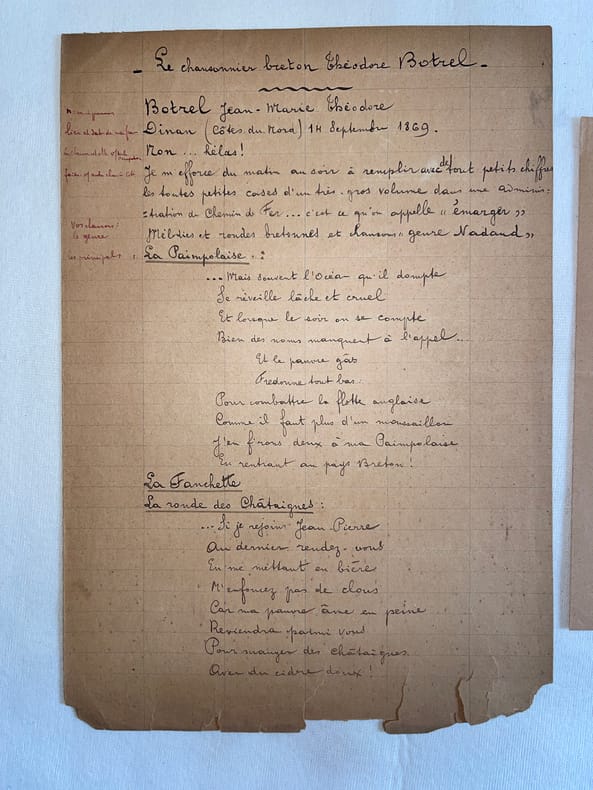 - Le chansonnier breton Théodore Botrel -
Botrel Jean-Marie Théodore
Lieu et date de
Dinan (Côtes du Nord) 14 Septembre 1869.
Non ... hélas!
Je m'efforce du matin au soir à remplir avec de tout petits chiffres
les toutes petites cases d'un très gros volume dans une adminis:
:tration de Chemin de Fer... c'est ce qu'on appelle "émarger"
Vos
le genre
Mélodies et rondes bretonnes et chansons "genre Nadaud"
les principales :
La Paimpolaise :
...Mais souvent l'Océan qu'il dompte
Se réveille lâche et cruel
Et lorsque le soir on se compte
Bien des noms manquent à l'appel...
Et le pauvre gâs
Fredonne tout bas:
Pour combattre la flotte anglaise
Comme il faut plus d'un moussaillon
J'en f'rons deux à ma Paimpolaise
En rentrant au pays Breton!
La Fanchette
La ronde des Châtaignes :
...Si je rejoins Jean-Pierre
Au dernier rendez-vous
En me mettant en bière
N'enfoncez pas de clous
Car ma pauvre âme en peine
Reviendra parmi vous
Pour manger des châtaignes
Avec du cidre doux!